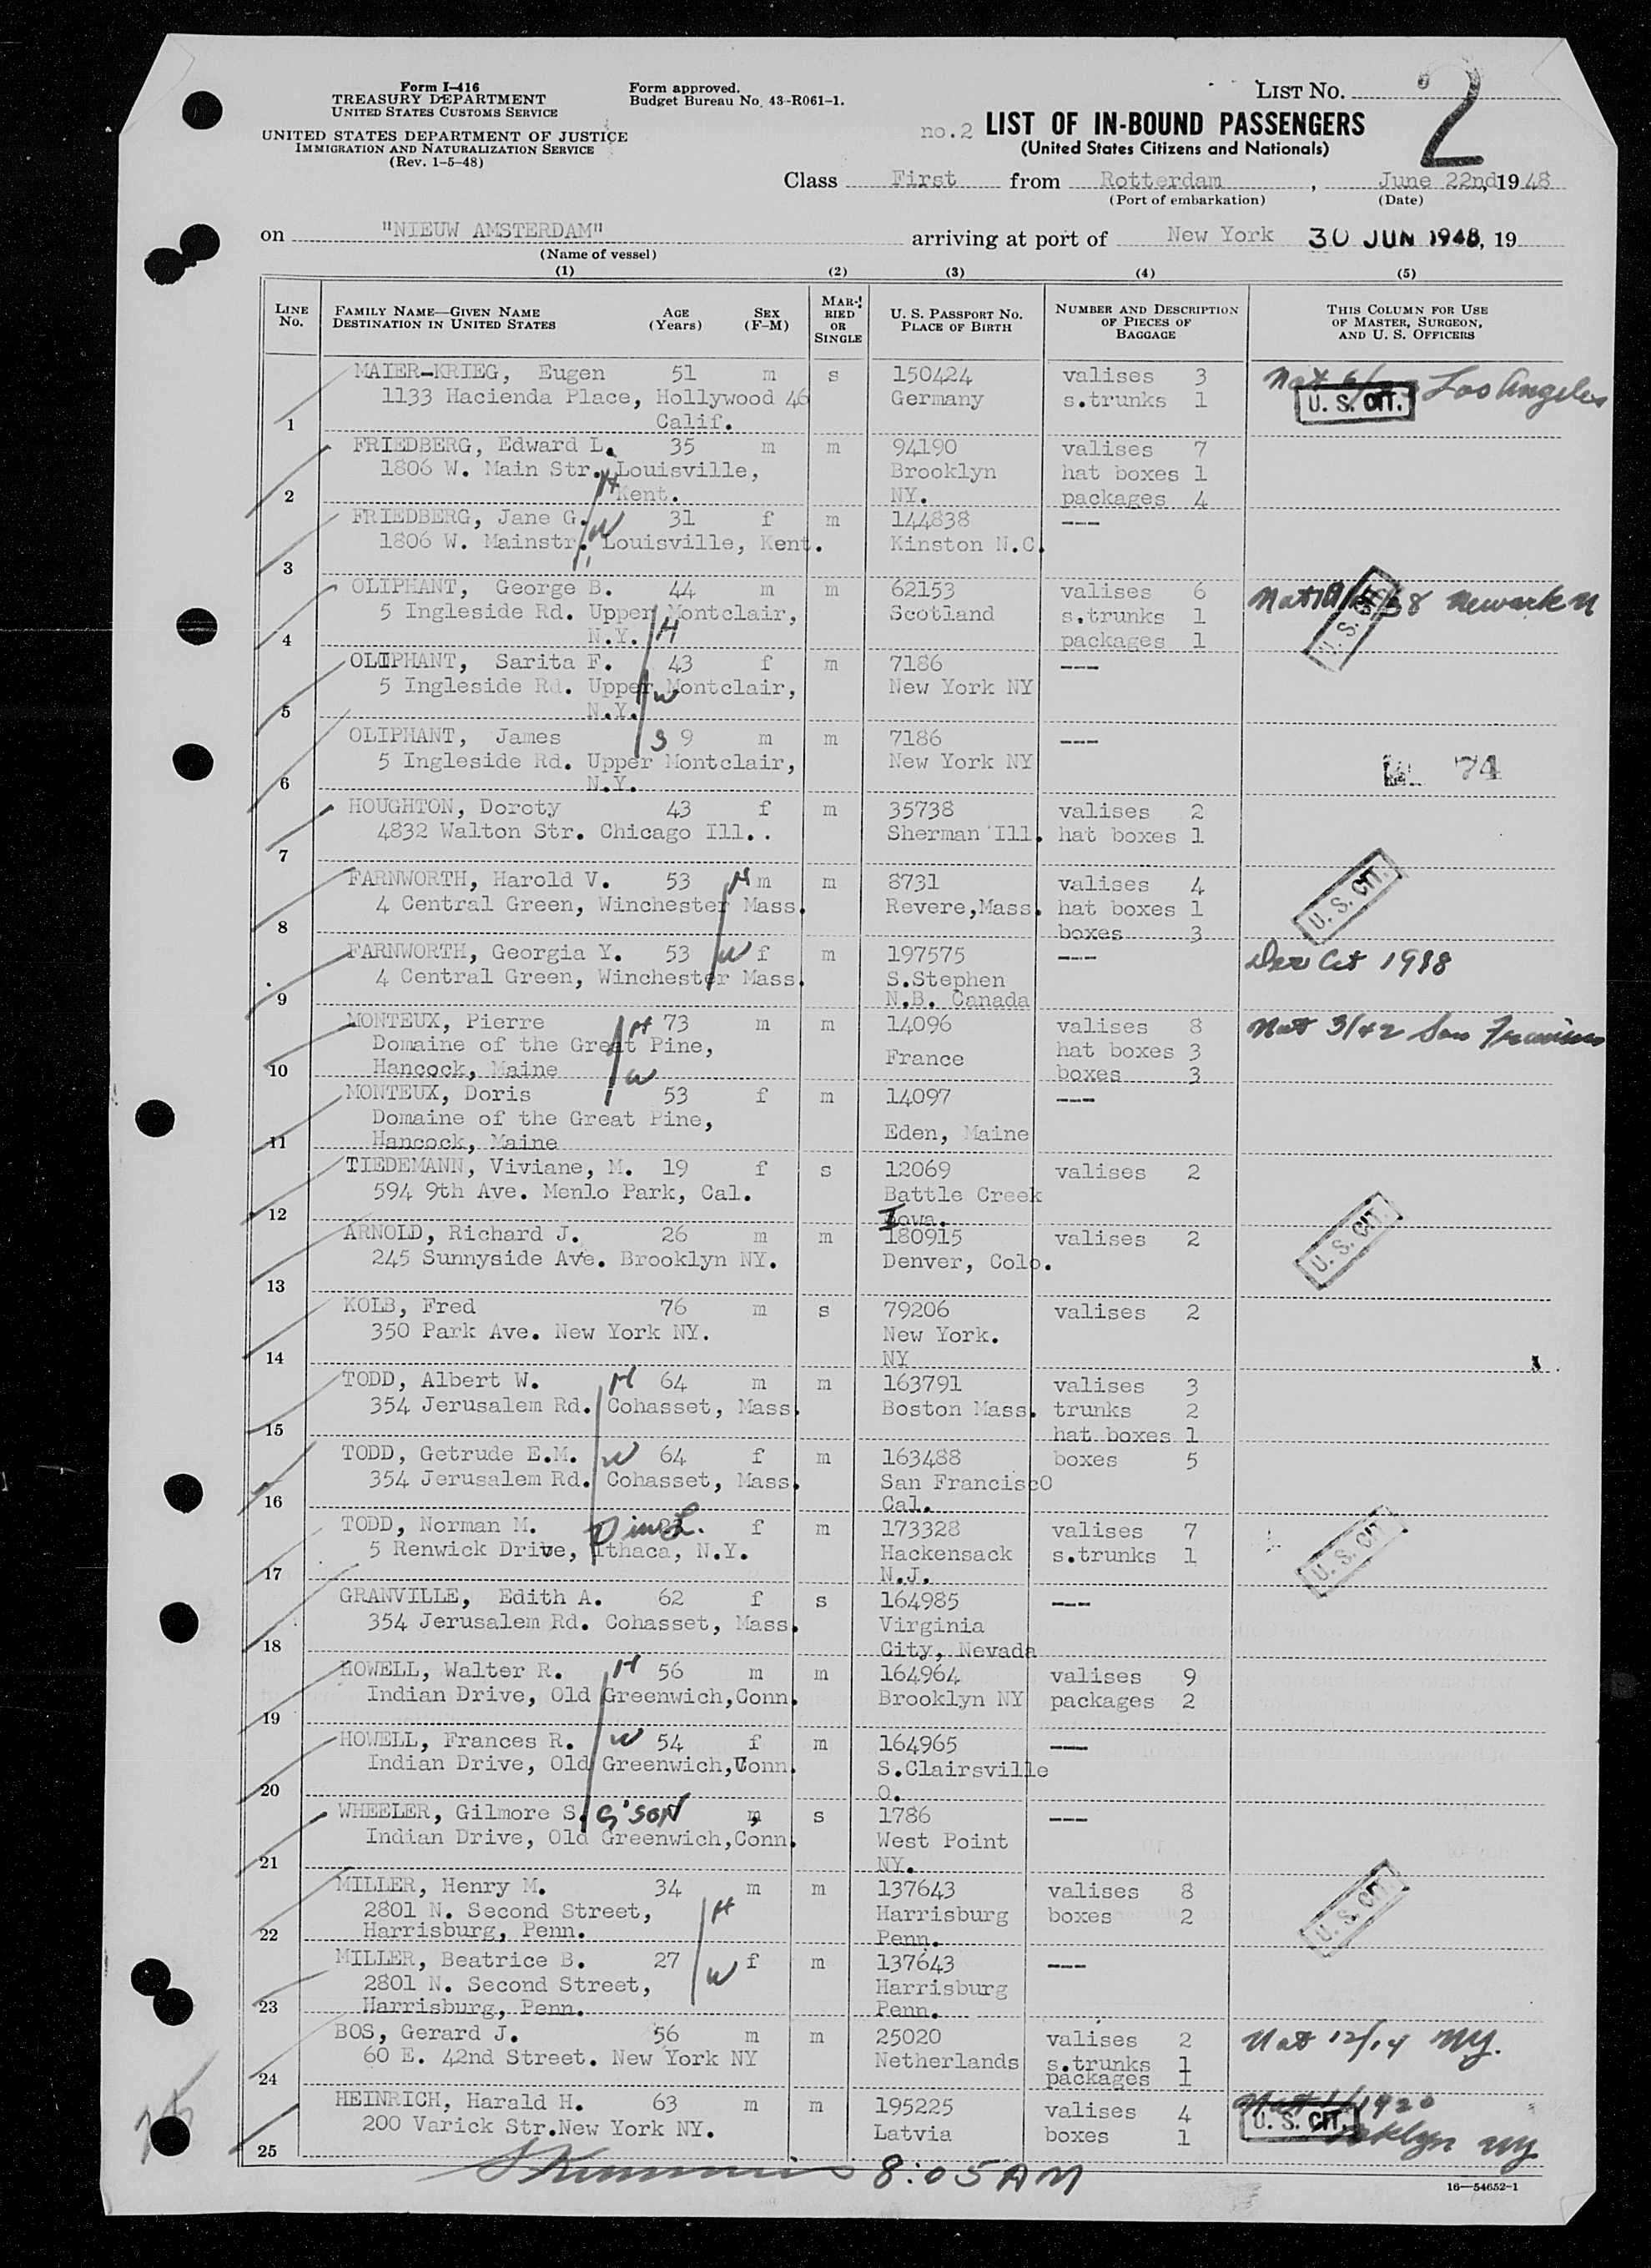 Form I-416
TREASURY DEPARTMENT
UNITED STATES CUSTOMS SERVICE
UNITED STATES DEPARTMENT OF JUSTICE
IMMIGRATION AND NATURALIZATION SERVICE
(Rev. 1-5-48)
Form approved.
Budget Bureau No. 43-R061-1.
LIST NO. 2
no.2 LIST OF IN-BOUND PASSENGERS
(United States Citizens and Nationals)
Class First from Rotterdam, June 22nd, 1948
(Port of embarkation) (Date)
on "NIEUW AMSTERDAM" arriving at port of New York 30 JUN 1948, 19
(Name of vessel)
(1) (2) (3) (4) (5)
LINE No. FAMILY NAME—GIVEN NAME DESTINATION IN UNITED STATES AGE (Years) SEX (F-M) MARRIED OR SINGLE U. S. PASSPORT NO. PLACE OF BIRTH NUMBER AND DESCRIPTION OF PIECES OF BAGGAGE THIS COLUMN FOR USE OF MASTER, SURGEON, AND U. S. OFFICERS
MAIER-KRIEG, Eugen 51 m s 150424 valises 3 Nat Los Angeles
1133 Hacienda Place, Hollywood 46 Germany s.trunks 1 U. S. CIT.
1 Calif.
FRIEDBERG, Edward L. 35 m m 94190 valises 7
1806 W. Main Str. Louisville, Brooklyn hat boxes 1
2 H Kent. NY. packages 4
FRIEDBERG, Jane G. W 31 f m 144838 ---
1806 W. Mainstr. Louisville, Kent. Kinston N.C.
3
OLIPHANT, George B. 44 m m 62153 valises 6 Nat 38 Newark N
5 Ingleside Rd. Upper Montclair, Scotland s.trunks 1 U. S. CIT.
4 N.Y. H packages 1
OLIPHANT, Sarita F. 43 f m 7186 ---
5 Ingleside Rd. Upper Montclair, W New York NY
5 N.Y.
OLIPHANT, James S 9 m m 7186 ---
5 Ingleside Rd. Upper Montclair, New York NY 74
6 N.Y.
HOUGHTON, Doroty 43 f m 35738 valises 2
4832 Walton Str. Chicago Ill.. Sherman Ill. hat boxes 1
7
FARNWORTH, Harold V. 53 H m m 8731 valises 4 U. S. CIT.
4 Central Green, Winchester Mass. Revere,Mass. hat boxes 1
8 boxes 3
FARNWORTH, Georgia Y. 53 W f m 197575 --- Der Cit 1918
4 Central Green, Winchester Mass. S.Stephen
9 N.B. Canada
MONTEUX, Pierre H 73 m m 14096 valises 8 Nat 3/42 San Francisco
Domaine of the Great Pine, France hat boxes 3
10 Hancock, Maine W boxes 3
MONTEUX, Doris 53 f m 14097 ---
Domaine of the Great Pine, Eden, Maine
11 Hancock, Maine
TIEDEMANN, Viviane, M. 19 f s 12069 valises 2
594 9th Ave. Menlo Park, Cal. Battle Creek
12 Iowa.
ARNOLD, Richard J. 26 m m 180915 valises 2 U. S. CIT.
245 Sunnyside Ave. Brooklyn NY. Denver, Colo.
13
KOLB, Fred 76 m s 79206 valises 2
350 Park Ave. New York NY. New York.
14 NY
TODD, Albert W. H 64 m m 163791 valises 3
354 Jerusalem Rd. Cohasset, Mass. Boston Mass. trunks 2
15 hat boxes 1
TODD, Getrude E.M. W 64 f m 163488 boxes 5
354 Jerusalem Rd. Cohasset, Mass. San Francisco
16 Cal.
TODD, Norman M. D in L. f m 173328 valises 7 U. S. CIT.
5 Renwick Drive, Ithaca, N.Y. Hackensack s.trunks 1
17 N.J.
GRANVILLE, Edith A. 62 f s 164985 ---
354 Jerusalem Rd. Cohasset, Mass. Virginia
18 City, Nevada
HOWELL, Walter R. H 56 m m 164964 valises 9
Indian Drive, Old Greenwich,Conn. Brooklyn NY packages 2
19
HOWELL, Frances R. W 54 f m 164965 ---
Indian Drive, Old Greenwich,Conn. S.Clairsville
20 O.
WHEELER, Gilmore S. G'SON m s 1786 ---
Indian Drive, Old Greenwich,Conn. West Point
21 NY.
MILLER, Henry M. 34 m m 137643 valises 8 U. S. CIT.
2801 N. Second Street, H Harrisburg boxes 2
22 Harrisburg, Penn. Penn.
MILLER, Beatrice B. 27 W f m 137643 ---
2801 N. Second Street, Harrisburg
23 Harrisburg, Penn. Penn.
BOS, Gerard J. 56 m m 25020 valises 2 Nat 12/14 NY.
60 E. 42nd Street. New York NY Netherlands s.trunks 1
24 packages 1
HEINRICH, Harald H. 63 m m 195225 valises 4 Nat 1/1920
200 Varick Str.New York NY. Latvia boxes 1 U. S. CIT. NY
25
8:05 AM
16—54652-1